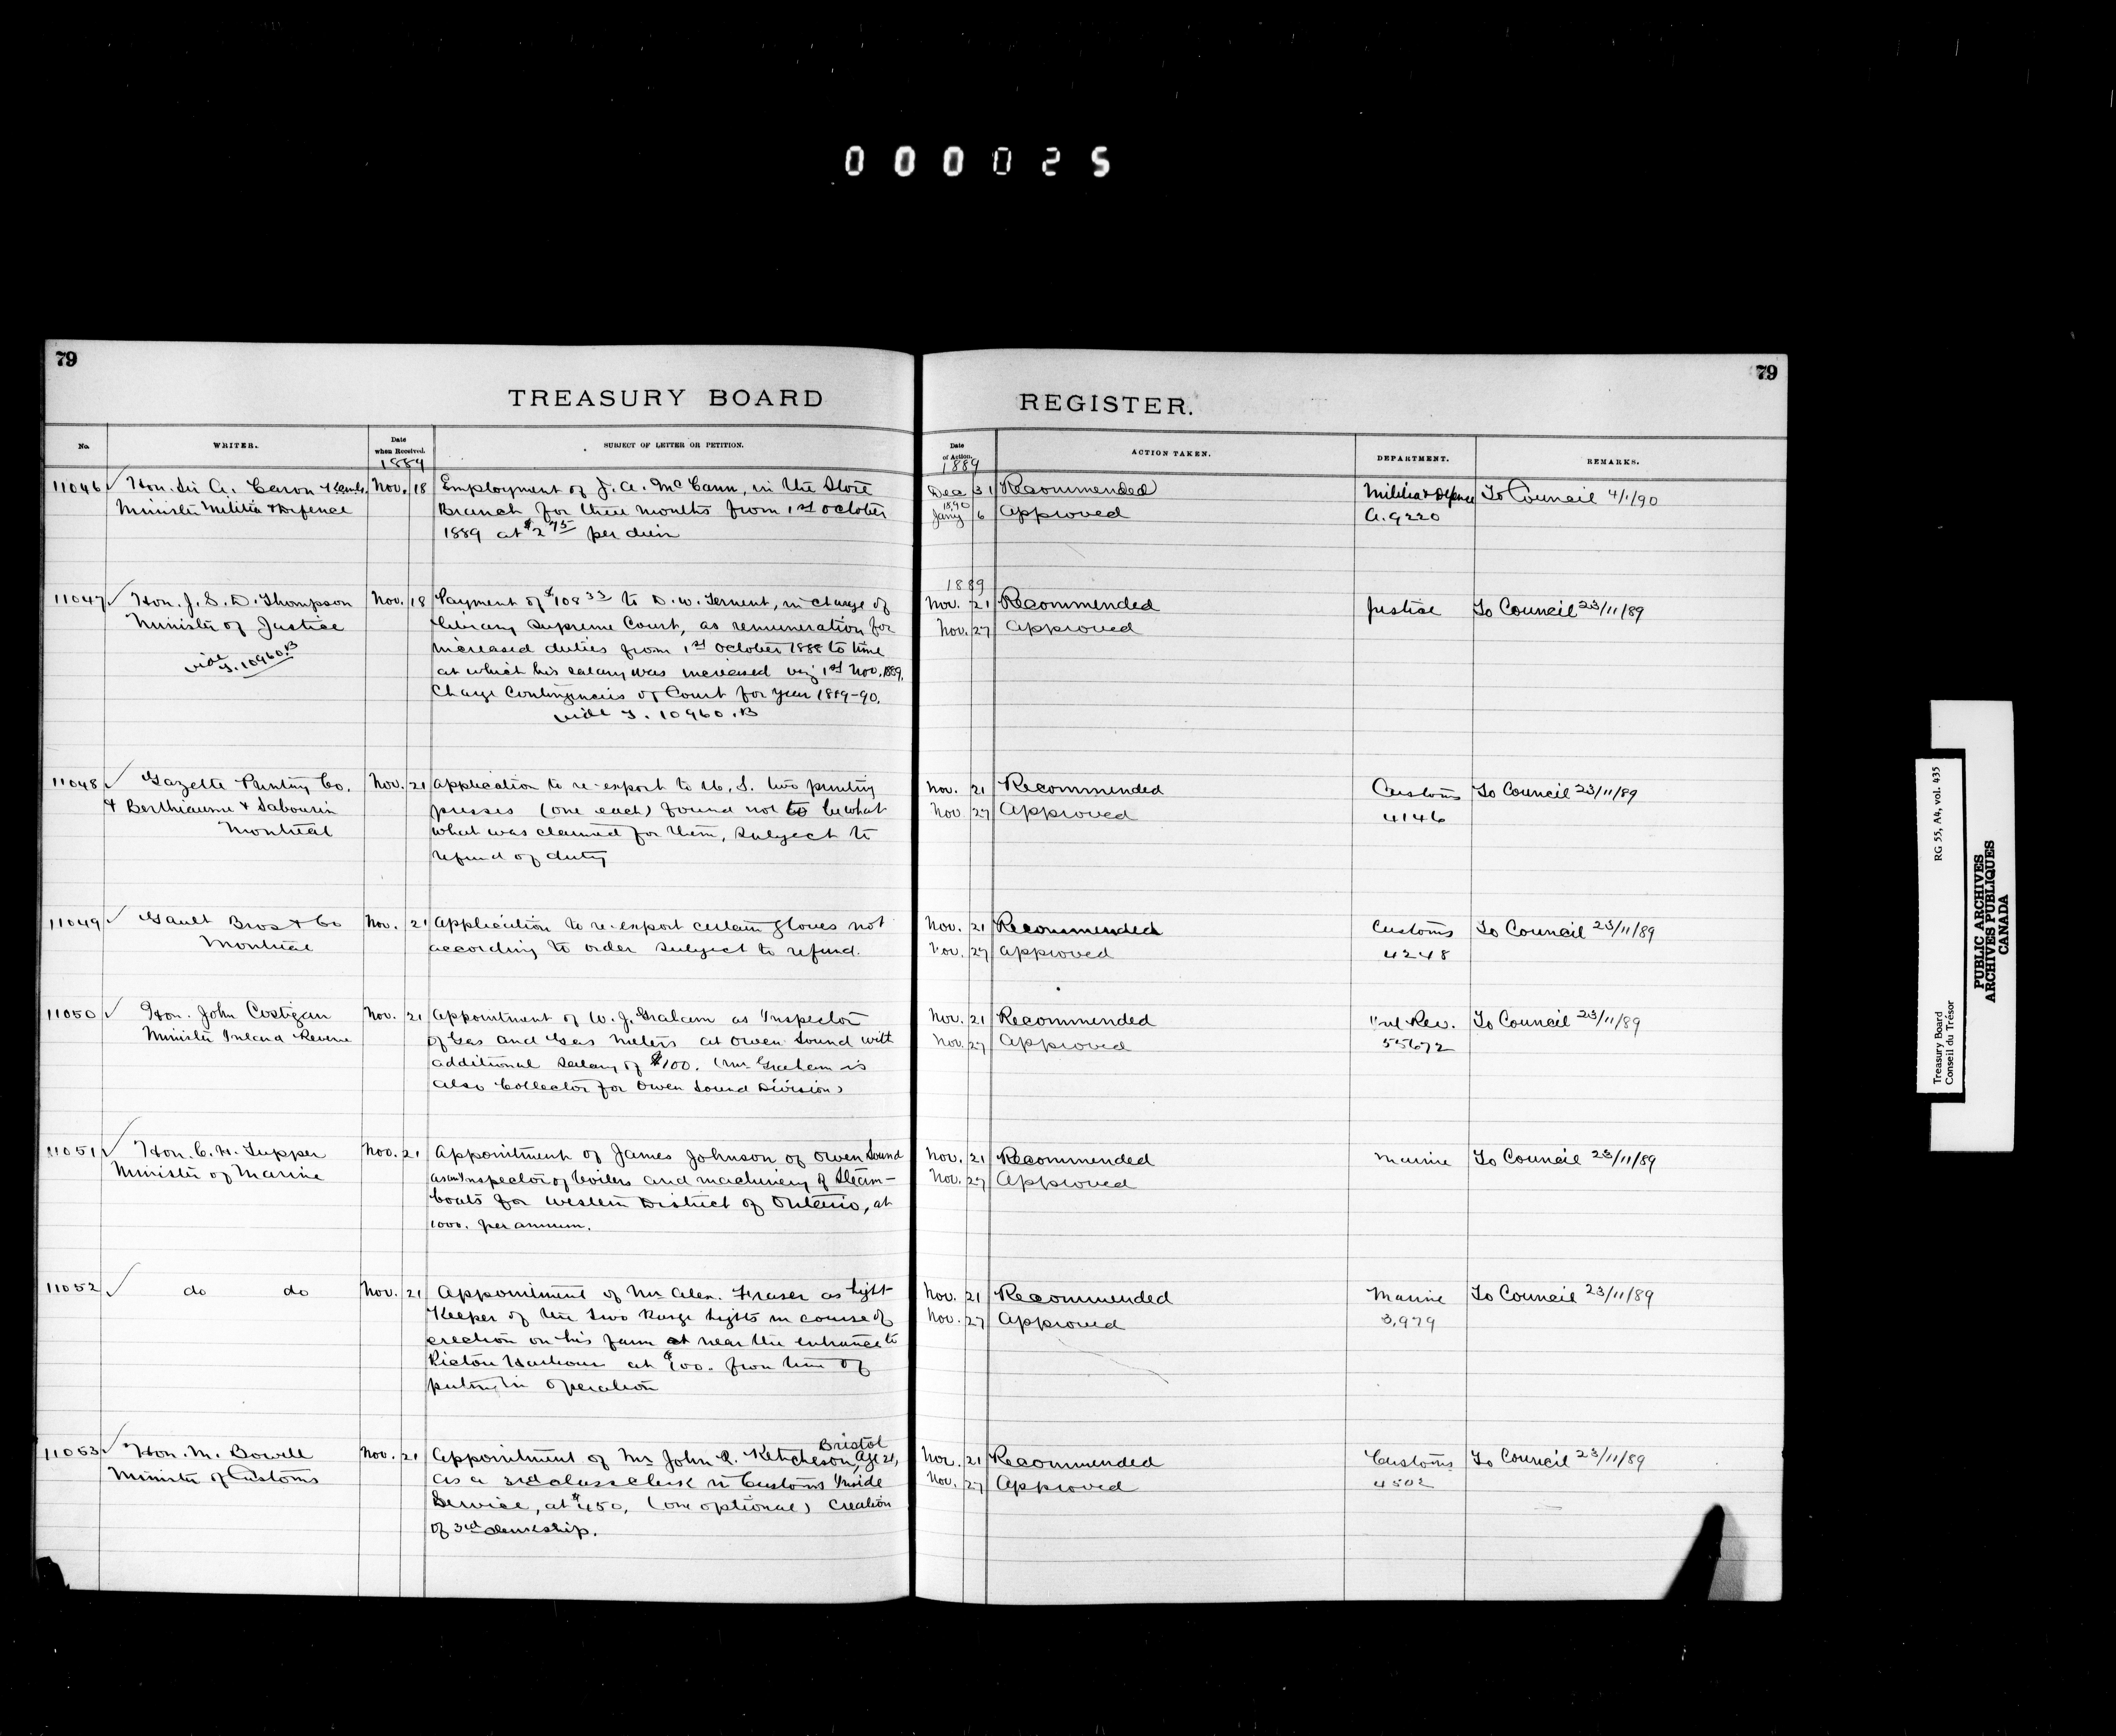 000025
79
79
TREASURY BOARD
REGISTER.
No.
WRITER.
Date when Received.
SUBJECT OF LETTER OR PETITION.
Date of Action.
ACTION TAKEN.
DEPARTMENT.
REMARKS.
1889
1889
11046 Hon. Sir A. Caron
Nov. 18 Employment of J. A. McCann, in the Store
Dec 31 Recommended
Militia & Defence To Council 4/1/90
Minister Militia & Defence
Branch for three months from 1st October
1890
Jany 6 Approved
A. 9220
1889 at $2 75 per diem
1889
11047 Hon. J. S. D. Thompson
Nov. 18 Payment of $108 33 to D. W. Ternent, in charge of
Nov. 21 Recommended
Justice To Council 23/11/89
Minister of Justice
Library Supreme Court, as remuneration for
Nov. 27 Approved
vide T. 10960.B
increased duties from 1st October 1888 to time
at which his salary was increased viz 1st Nov. 1889.
Charge Contingencies of Court for year 1889-90.
vide T. 10960.B
11048 Gazette Printing Co.
Nov. 21 Application to re-export to U. S. two printing
Nov. 21 Recommended
Customs To Council 23/11/89
& Berthiaume & Sabourin
presses (one each) found not to be what
Nov 27 Approved
4146
Montreal
what was claimed for them, subject to
refund of duty
11049 Gault Bros & Co
Nov. 21 Application to re-export certain gloves not
Nov. 21 Recommended
Customs To Council 23/11/89
Montreal
according to order subject to refund.
Nov. 27 Approved
4248
11050 Hon. John Costigan
Nov. 21 Appointment of W. J. Graham as Inspector
Nov. 21 Recommended
Inl Rev. To Council 23/11/89
Minister Inland Revenue
of Gas and Gas Meters at Owen Sound with
Nov. 27 Approved
55672
additional salary of $100. (Mr Graham is
also Collector for Owen Sound Division)
11051 Hon. C. H. Tupper
Nov. 21 Appointment of James Johnson of Owen Sound
Nov. 21 Recommended
Marine To Council 23/11/89
Minister of Marine
as an Inspector of boilers and machinery of Steam-
Nov. 27 Approved
boats for Western District of Ontario, at
1000. per annum.
11052 do do
Nov. 21 Appointment of Mr Alex. Fraser as light
Nov. 21 Recommended
Marine To Council 23/11/89
Keeper of the two Range Lights in course of
Nov. 27 Approved
3,979
erection on his farm at near the entrance to
Pictou Harbour at $100. from time of
putting in operation
11053 Hon. M. Bowell
Bristol
Nov. 21 Appointment of Mr John R. Ketcheson, Age 21,
Nov. 21 Recommended
Customs To Council 23/11/89
Minister of Customs
as a 3rd class clerk in Customs Inside
Nov. 27 Approved
4502
Service, at $450, (one optional) creation
of 3rd clerkship.
RG 55, A4, vol. 435
Treasury Board
Conseil du Trésor
PUBLIC ARCHIVES
ARCHIVES PUBLIQUES
CANADA